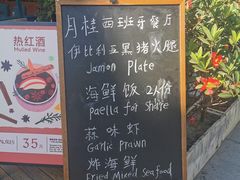 热红酒
Mulled Wine
35
月桂西班牙餐厅
伊比利亚黑猪火腿
Jamon Plate
海鲜饭 2人份
Paella for Share
蒜味虾
Garlic Prawn
炸海鲜
Fried Mixed Seafood